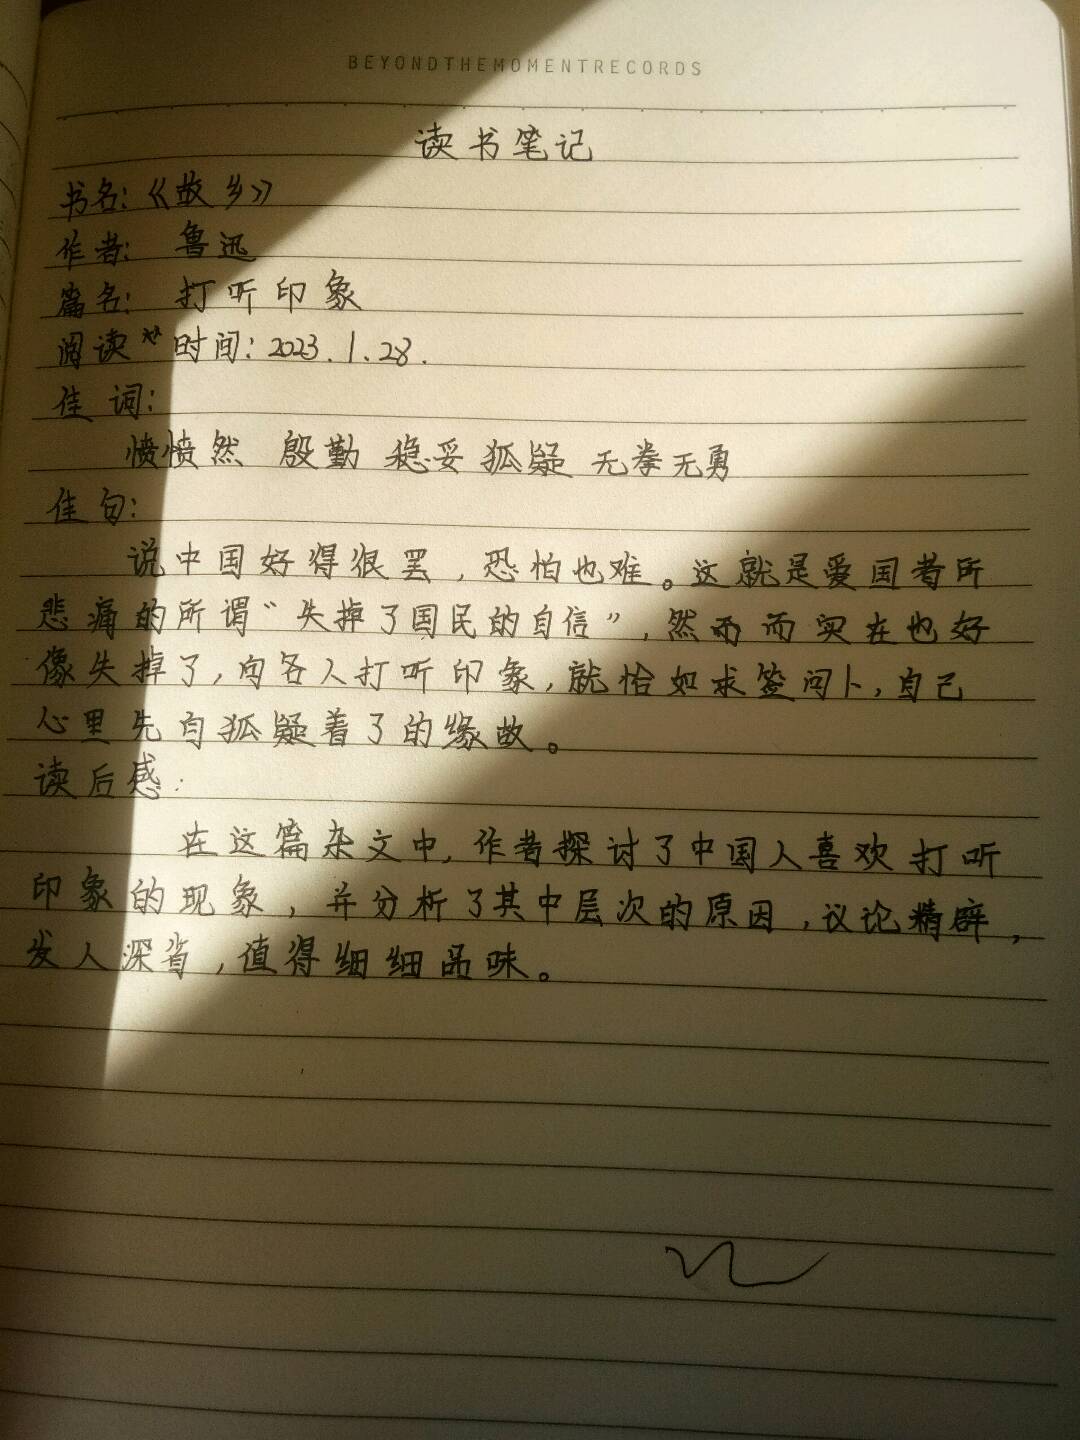 BEYONDTHEMOMENTRECORDS
读书笔记
书名:《故乡》
作者: 鲁迅
篇名: 打听印象
阅读时间: 2023.1.28.
佳词:
愤愤然 殷勤 稳妥 狐疑 无拳无勇
佳句:
说中国好得很罢,恐怕也难。这就是爱国者所
悲痛的所谓“失掉了国民的自信”,然而而实在也好
像失掉了,向各人打听印象,就恰如求签问卜,自己
心里先自狐疑着了的缘故。
读后感:
在这篇杂文中,作者探讨了中国人喜欢打听
印象的现象,并分析了其中层次的原因,议论精辟,
发人深省,值得细细品味。